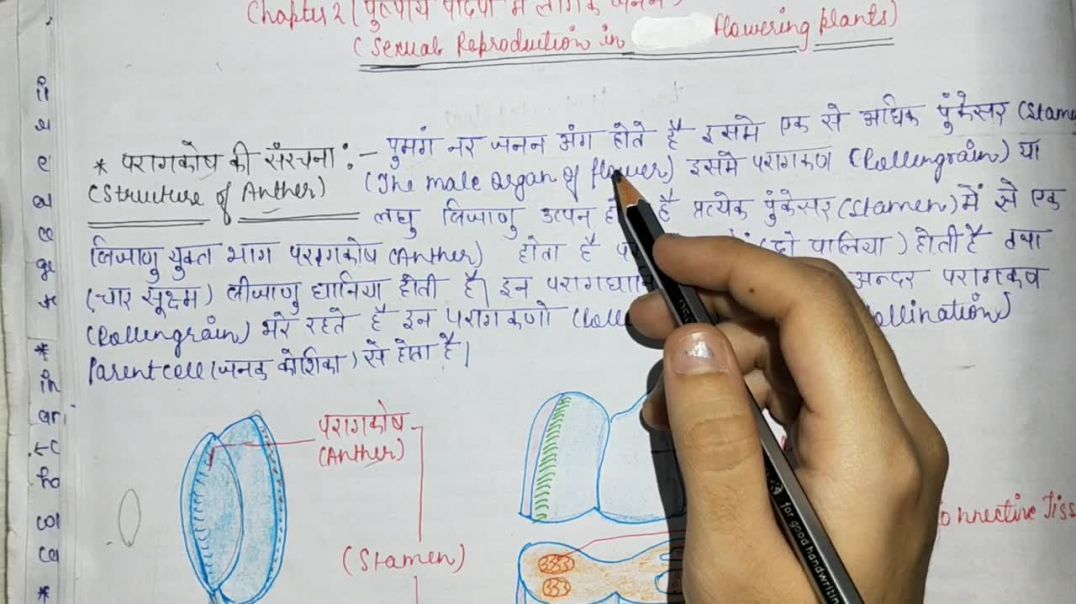 Chapter 2 ( पुष्पीय पादपों में लैंगिक जनन )
( Sexual Reproduction in flowering plants )
* परागकोष की संरचना :- पुमंग नर जनन अंग होते है इसमे एक से अधिक पुंकेसर (Stam
(Structure of Anther) (The male organ of flower) इसमे परागकण (Pollengrain) या
लघु बिजाणु उत्पन है प्रत्येक पुंकेसर (Stamen) में से एक
बिजाणु युक्त भाग परागकोष (Anther) होता है पालिया ) होती है तथा
(चार सूक्ष्म) बीजाणु धानिया होती है। इन अन्दर परागकण
(Pollengrain) भरे रहते है इन परागकणो ollination)
Parent cell (जनक कोशिका) से होता है।
परागकोष
(Anther)
(Stamen)
onnective Tiss
for good handwriting